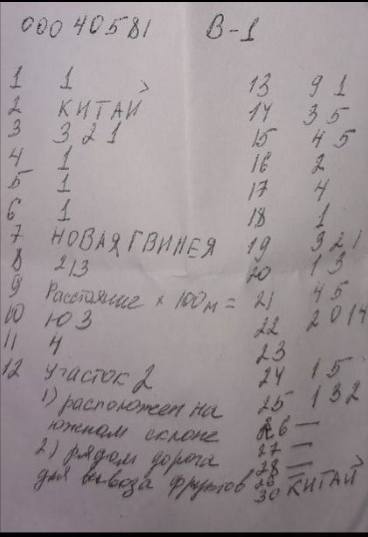 00040581 В-1
1 1
2 КИТАЙ
3 321
4 1
5 1
6 1
7 НОВАЯ ГВИНЕЯ
8 213
9 Расстояние × 100м =
10 ЮЗ
11 4
12 Участок 2
1) расположен на
южном склоне
2) рядом дорога
для вывоза фруктов
13 91
14 35
15 45
16 2
17 4
18 1
19 321
20 13
21 45
22 2014
23
24 15
25 132
26 —
27 —
28 —
29
30 КИТАЙ